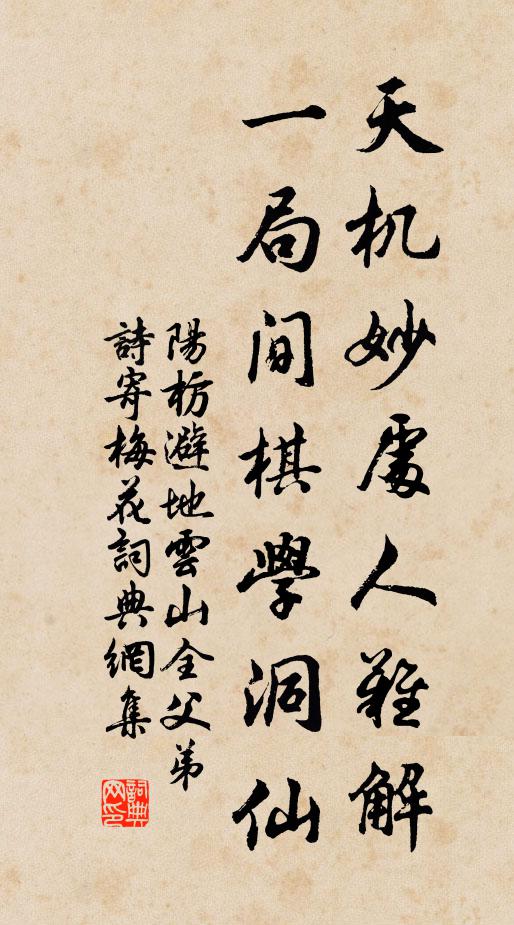 天机妙處人難解
一局間棋學洞仙
陽枋避地雲山全父弟
詩寄梅花詞典網集
詞典網印